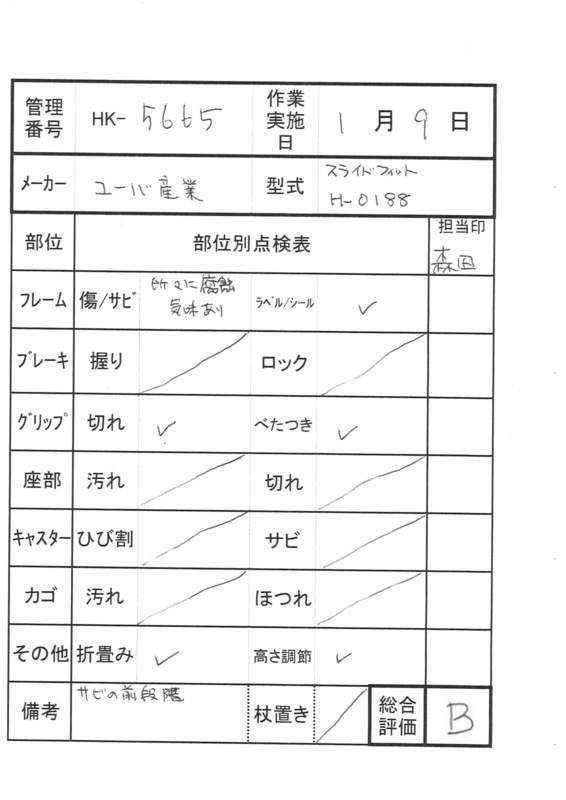 管理番号 HK- 5665 作業実施日 1月9日
メーカー ユーバ産業 型式 スライドフィット H-0188
部位 部位別点検表 担当印 森田
フレーム 傷/サビ 所々に腐蝕気味あり ラベル/シール ✓
ブレーキ 握り ロック
グリップ 切れ ✓ べたつき ✓
座部 汚れ 切れ
キャスター ひび割 サビ
カゴ 汚れ ほつれ
その他 折畳み ✓ 高さ調節 ✓
備考 サビの前段階 杖置き 総合評価 B